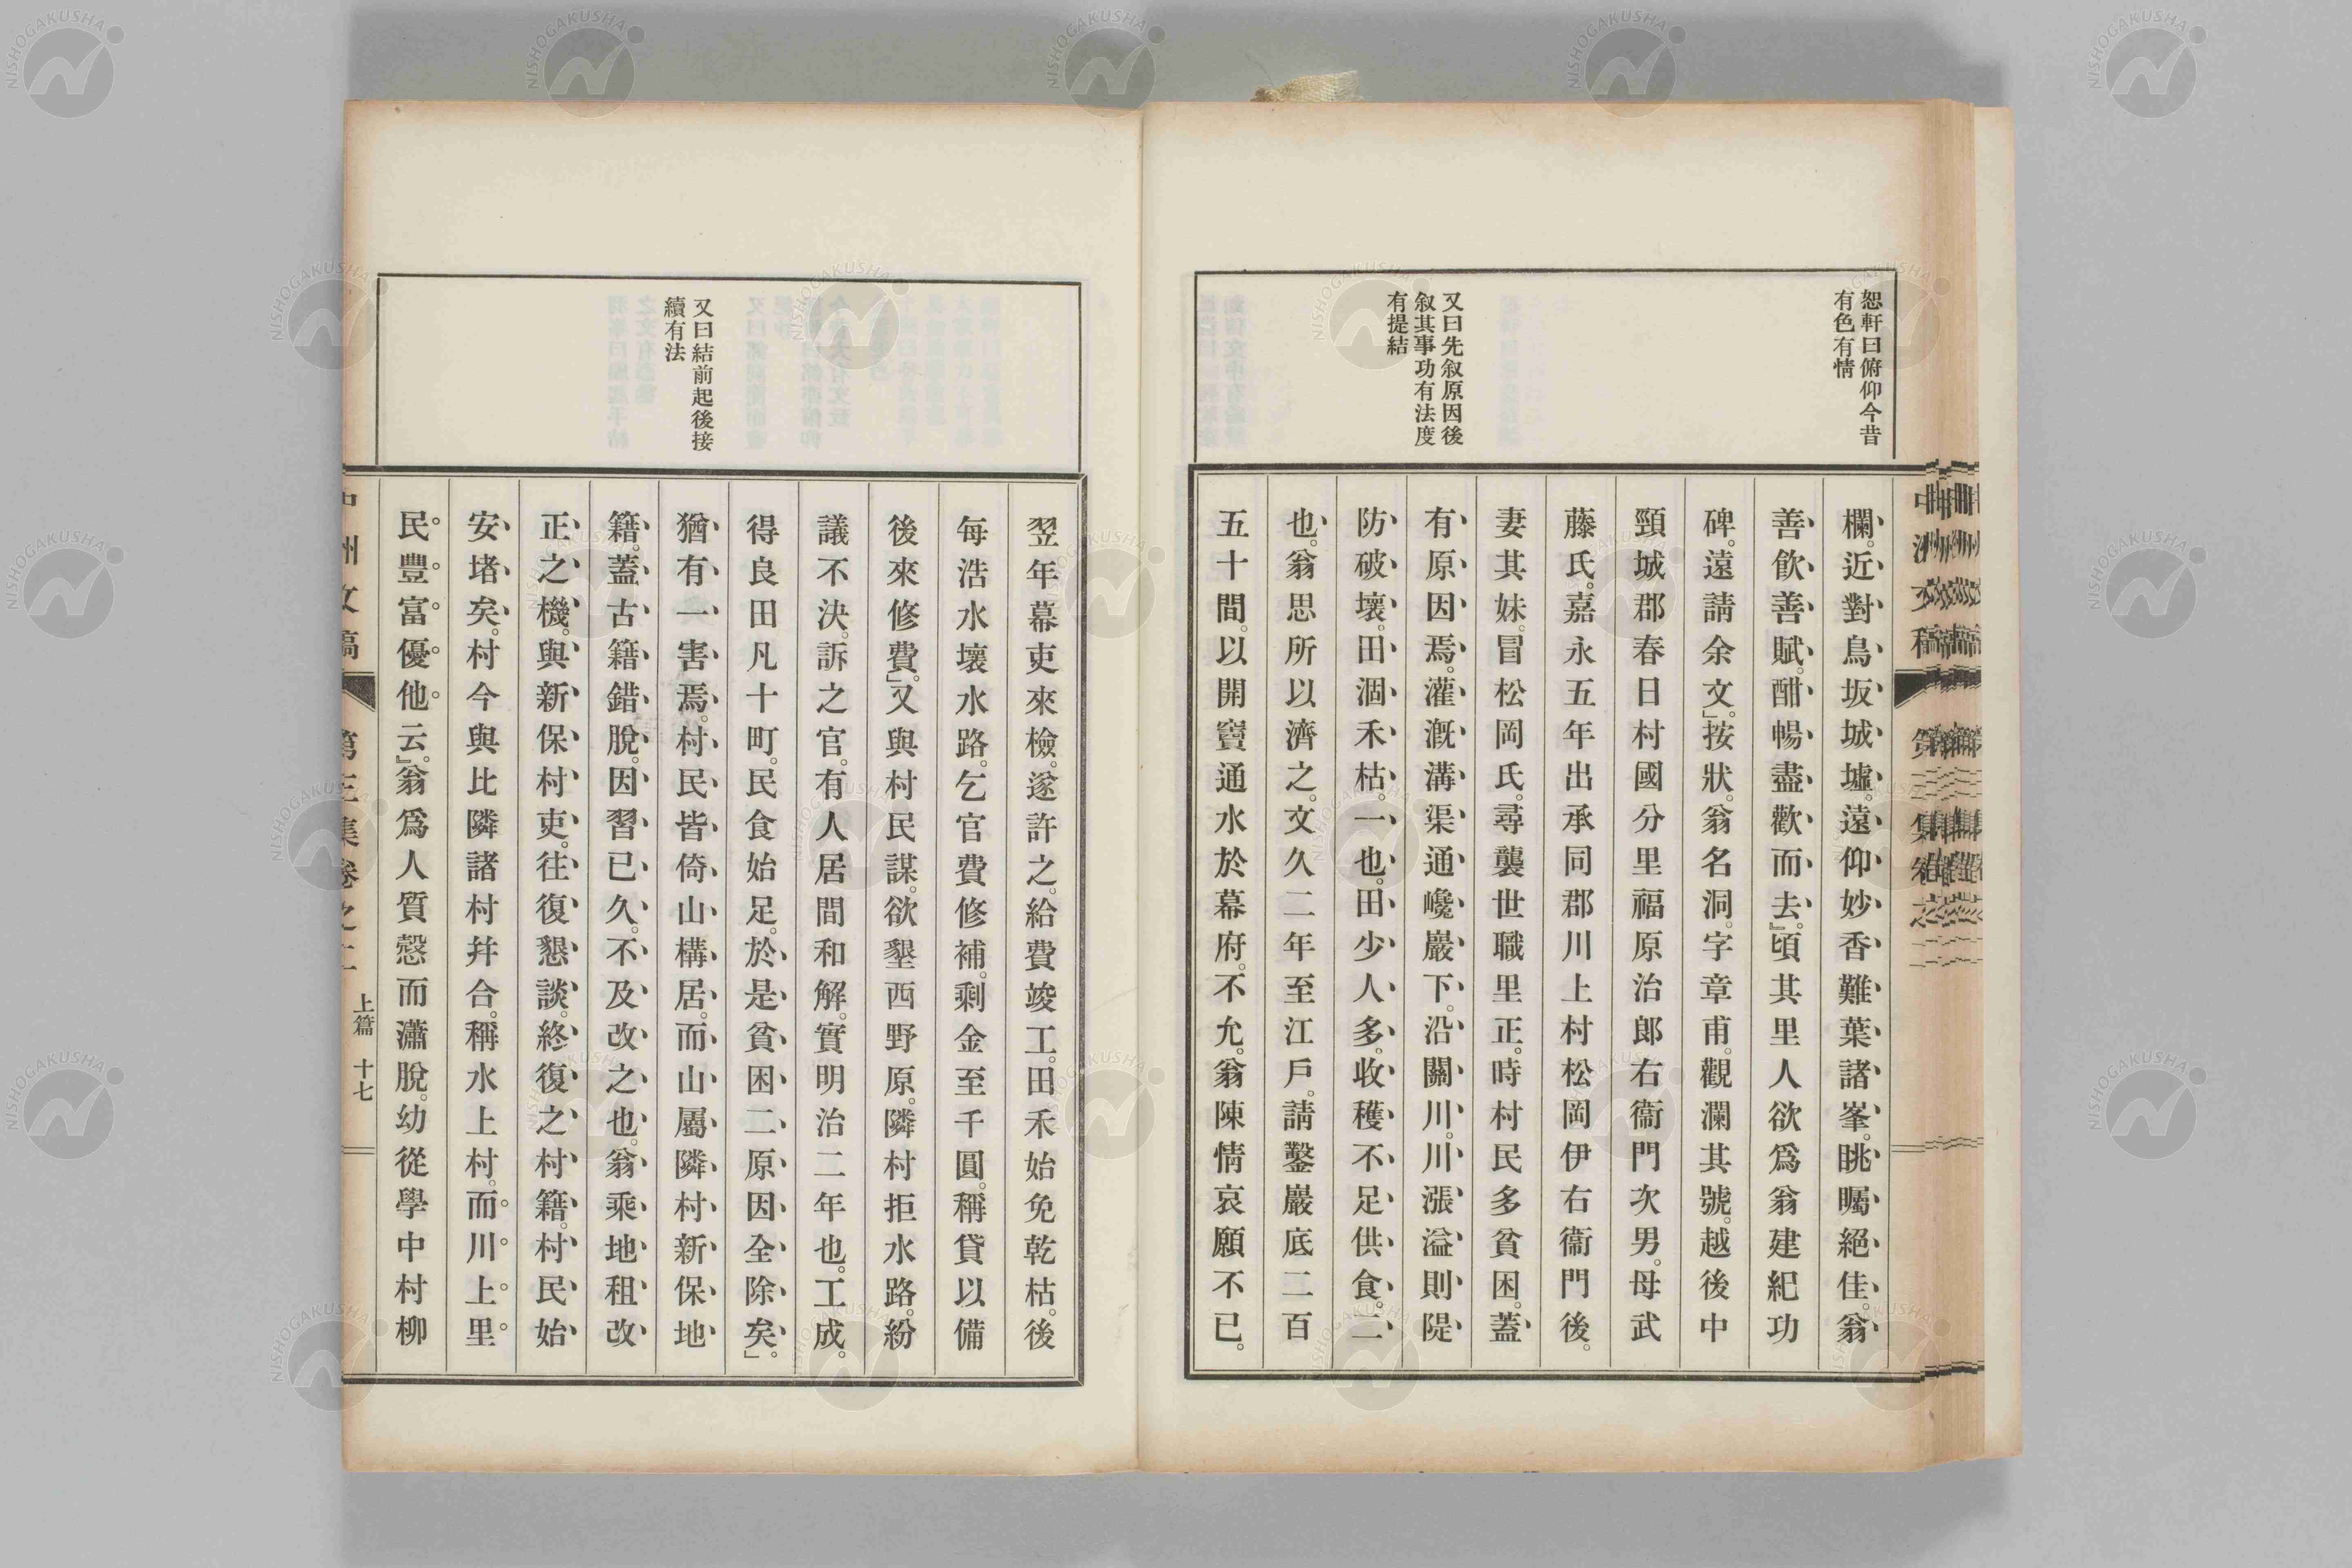 恕軒曰俯仰今昔
有色有情
又曰先叙原因後
叙其事功有法度
有提結
欄。近對鳥坂城墟。遠仰妙香難葉諸峯。眺矚絕佳。翁
善飮善賦。酣暢盡歡而去。』頃其里人欲爲翁建紀功
碑。遠請余文。」按狀。翁名洞。字章甫。觀瀾其號。越後中
頸城郡春日村國分里福原治郞右衞門次男。母武
藤氏。嘉永五年出承同郡川上村松岡伊右衞門後。
妻其妹。冒松岡氏。尋襲世職里正。時村民多貧困。蓋
有原因焉。灌漑溝渠通巉巖下。沿關川。川漲溢則隄
防破壞。田涸禾枯。一也。田少人多。收穫不足供食。二
也。翁思所以濟之。文久二年至江戶。請鑿巖底二百
五十間。以開竇通水於幕府。不允。翁陳情哀願不已。
又曰結前起後接
續有法
翌年幕吏來檢。遂許之。給費竣工。田禾始免乾枯。後
每浩水壞水路。乞官費修補。剩金至千圓。稱貸以備
後來修費。」又與村民謀。欲墾西野原。隣村拒水路。紛
議不決。訴之官。有人居間和解。實明治二年也。工成。
得良田凡十町。民食始足。於是貧困二原因全除矣。」
猶有一害焉。村民皆倚山構居。而山屬隣村新保地
籍。蓋古籍錯脫。因習已久。不及改之也。翁乘地租改
正之機。與新保村吏。往復懇談。終復之村籍。村民始
安堵矣。村今與比隣諸村幷合。稱水上村。而川上里
民豐富優他云。』翁爲人質愨而瀟脫。幼從學中村柳
中洲文稿
第三集卷之二
上篇 十七